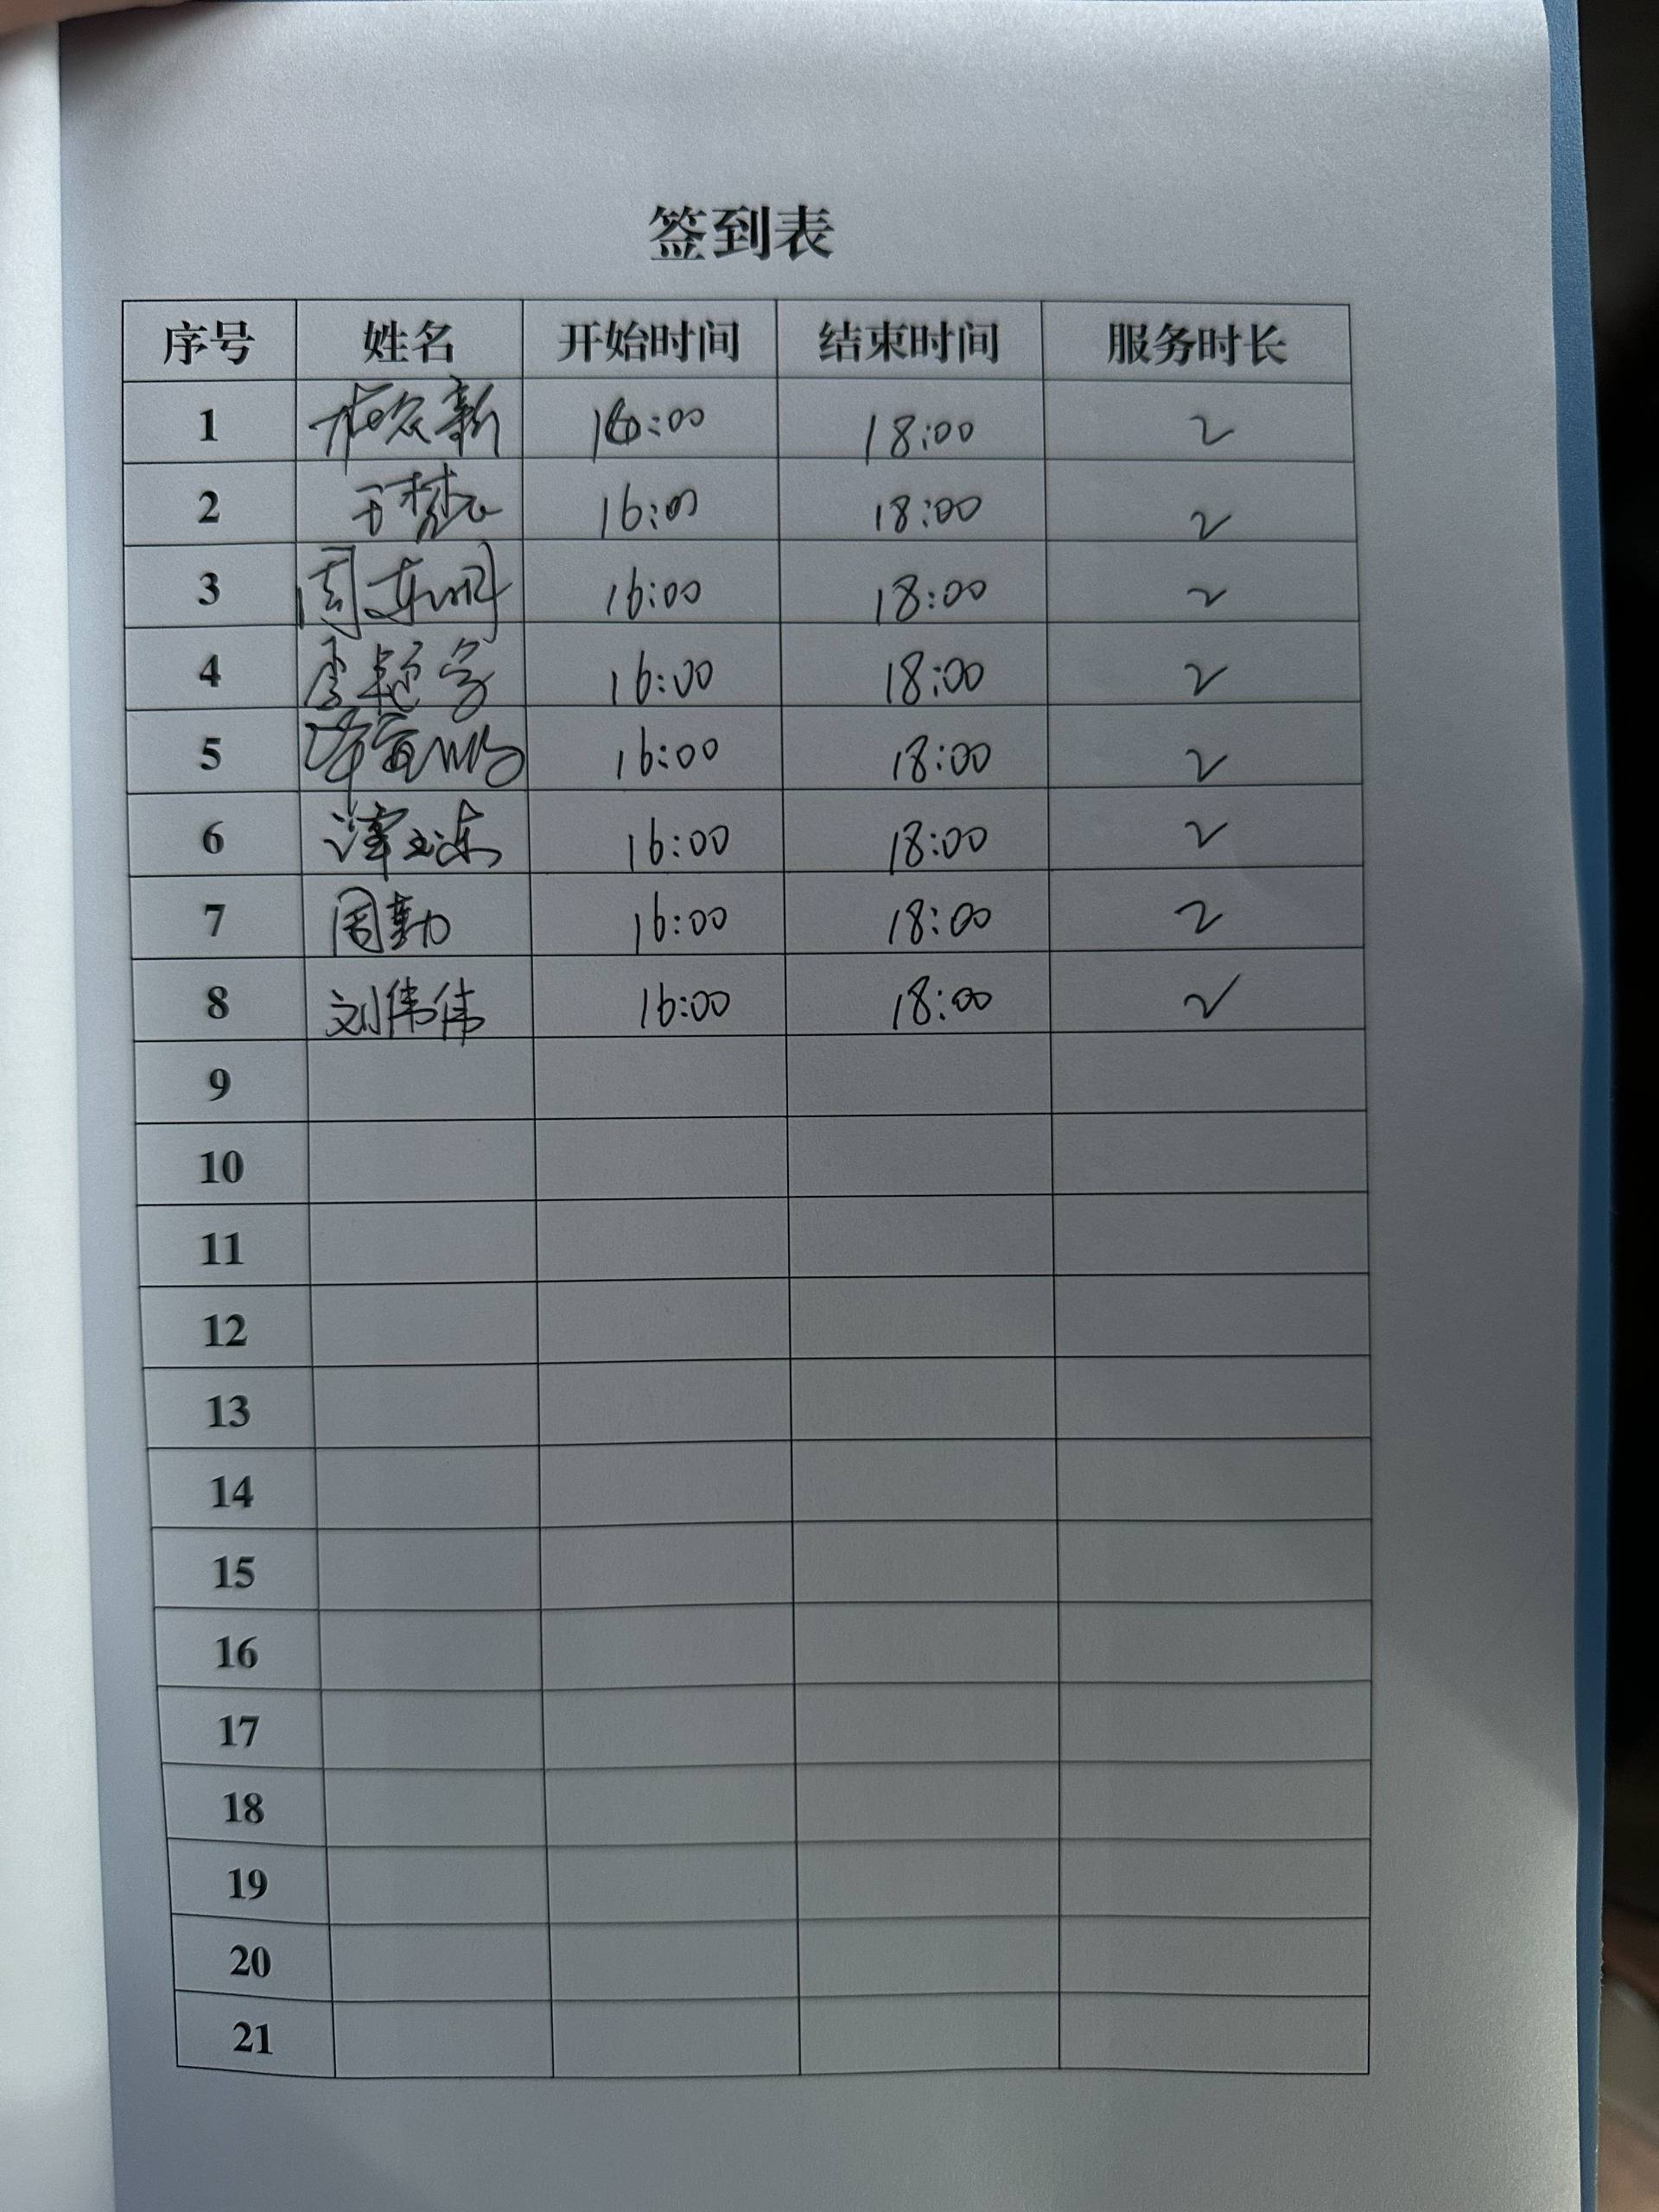 签到表
序号 姓名 开始时间 结束时间 服务时长
1 16:00 18:00 2
2 16:00 18:00 2
3 周 16:00 18:00 2
4 李超宇 16:00 18:00 2
5 16:00 18:00 2
6 16:00 18:00 2
7 周勤 16:00 18:00 2
8 刘伟伟 16:00 18:00 2
9
10
11
12
13
14
15
16
17
18
19
20
21